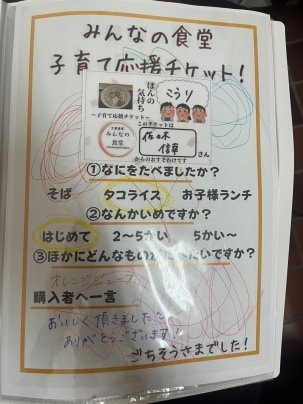 みんなの食堂
子育て応援チケット!
ほんの
気持ち
こうり
〜子育て応援チケット〜
このチケットは
みんなの
食堂
佐々木
さん
からのおすそわけです
①なにをたべましたか?
そば タコライス お子様ランチ
②なんかいめですか?
はじめて 2〜5かい 5かい〜
③ほかにどんなもいが べたいですか?
オレンジジュース
購入者へ一言
おいしく頂きました〜
ありがとうございます!
ごちそうさまでした!